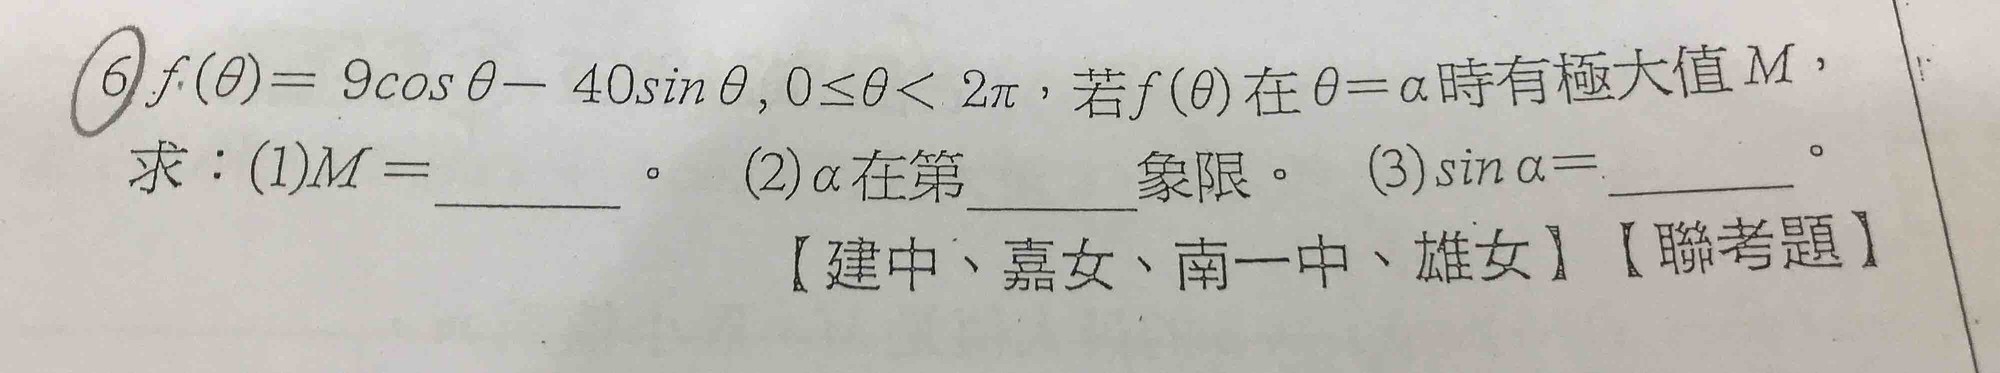 6 f(θ)= 9cos θ− 40sin θ , 0≤θ< 2π，若f(θ)在θ=α時有極大值M，
求：(1)M=______。 (2)α在第______象限。 (3)sin α=______。
【建中、嘉女、南一中、雄女】【聯考題】